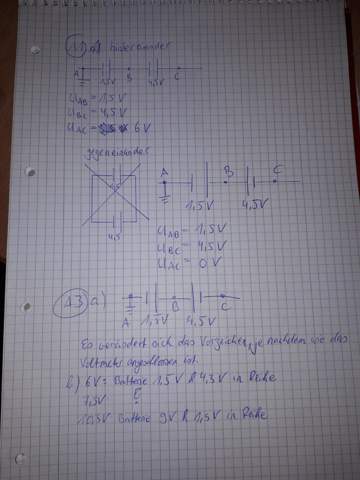 1.1) a) hintereinander
A B C
1,5V 4,5V
U AB = 1,5V
U BC = 4,5V
U AC = 6V
gegeneinander
4,5
A B C
1,5V 4,5V
U AB = 1,5V
U BC = 4,5V
U AC = 0V
1.3) a)
A B C
1,5V 4,5V
Es verändert sich das Vorzeichen, je nachdem wie das
Voltmeter angeschlossen ist.
b) 6V = Batterie 1,5V & 4,5V in Reihe
7,5V
10,5V Batterie 9V & 1,5V in Reihe